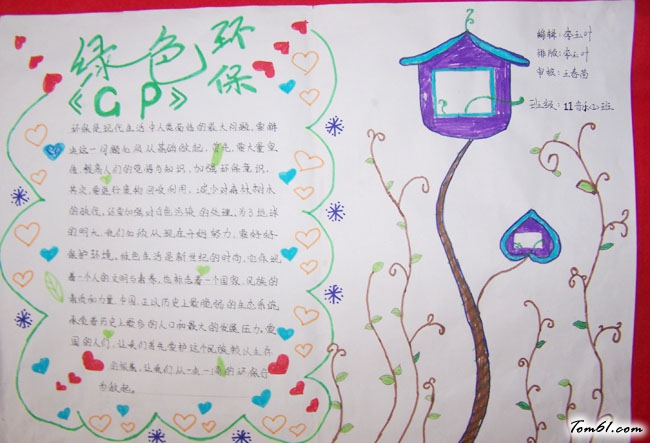 绿色环保
《GP》
环保是现代生活中人类面临的最大问题，要解
决这一问题必须从基础做起，首先，要大量宣
传，提高人们的觉悟与知识，加强环保意识。
其次，要进行废物回收利用，减少对森林树木
的砍伐，还要加强对白色污染的处理，为了地球
的明天，我们必须从现在开始努力，要好好
保护环境。绿色生活是新世纪的时尚，它体现
着一个人的文明与素养，也标志着一个国家、民族的
素质和力量。中国，正以历史上最脆弱的生态系统，
承受着历史上最多的人口和最大的发展压力。爱
国的人们，让我们首先爱护这个民族赖以生存
的家园，让我们从一点一滴的环保行
为做起。
编辑：李玉叶
排版：李玉叶
审核：王春苗
班级：11音乐心班
Tom61.com